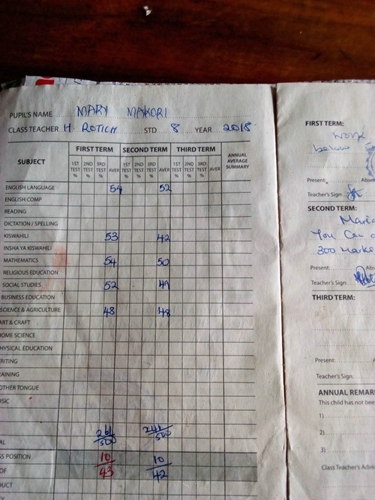 PUPIL'S NAME MARY MAKORI
CLASS TEACHER H ROTICH STD 8 YEAR 2018
SUBJECT FIRST TERM SECOND TERM THIRD TERM ANNUAL AVERAGE SUMMARY
1ST TEST % 2ND TEST % 3RD TEST % AVER 1ST TEST % 2ND TEST % 3RD TEST % AVER 1ST TEST % 2ND TEST % 3RD TEST % AVER
ENGLISH LANGUAGE 54 52
ENGLISH COMP
READING
DICTATION / SPELLING
KISWAHILI 53 42
INSHA YA KISWAHILI
MATHEMATICS 54 50
RELIGIOUS EDUCATION
SOCIAL STUDIES 52 49
BUSINESS EDUCATION
SCIENCE & AGRICULTURE 48 48
ART & CRAFT
HOME SCIENCE
PHYSICAL EDUCATION
RITING
EANING
OTHER TONGUE
USIC
AL 261/500 241/500
SS POSITION 10 10
OF 43 42
DUCT
FIRST TERM:
work
below
Present Abse
Teacher's Sign
SECOND TERM:
You Can
300 marks
Present: Ab
Teacher's Sign
THIRD TERM:
Present: Ab
Teacher's Sign.
ANNUAL REMAR
This child has not bee
1)
2)
3)
Class Teacher's Advi